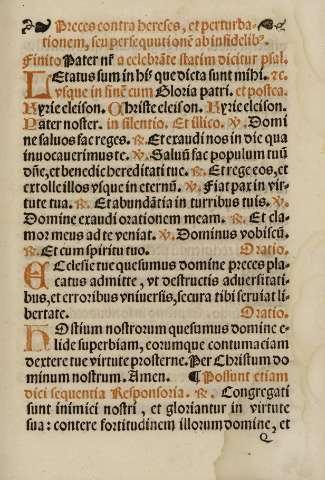 Preces contra hereses, et perturba-
tionem, seu persequutionē ab infidelib⁹.
Finito Pater nr̄ a celebrāte statim dicitur psal.
LEtatus sum in hi⁹ que dicta sunt mihi. ꝛc.
vsque in finē cum Gloria patri. et postea
Kyrie eleison. Christe eleison. Kyrie eleison.
Pater noster. in silentio. Et illico. ℣. Domi
ne saluos fac reges. ℟. Et exaudi nos in die qua
inuocauerimus te. ℣. Saluū fac populum tuū
dn̄e, et benedic hereditati tue. ℟. Et rege eos, et
extolle illos vsque in eternū. ℣. Fiat pax in vir-
tute tua. ℟. Et abundātia in turribus tuis. ℣.
Domine exaudi orationem meam. ℟. Et cla-
mor meus ad te veniat. ℣. Dominus vobiscū.
℟. Et cum spiritu tuo. Oratio.
ECclesie tue quesumus domine preces pla-
catus admitte, vt destructis aduersitati-
bus, et erroribus vniuersis, secura tibi seruiat li
bertate. Oratio.
HOstium nostrorum quesumus domine e-
lide superbiam, eorumque contumaciam
dextere tue virtute prosterne. Per Christum do
minum nostrum. Amen. ¶ Possunt etiam
dici sequentia Responsoria. ℟. Congregati
sunt inimici nostri, et gloriantur in virtute
sua: contere fortitudinem illorum domine, et
Q